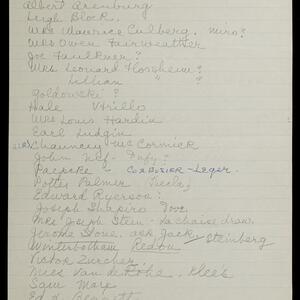 Albert Arenburg
Leigh Block.
Mrs Maurice Culberg, Miro?
Mrs Owen Fairweather
Joe Faulkner?
Mrs Leonard Florsheim?
" Lillian " ?
Goldowski?
Hale Utrillo
Mrs Louis Hardin
Earl Ludgin
Mrs Chauncey McCormick
John Nef - Dufy?
Paepcke - Corbusier - Leger.
Potter Palmer
Edward Ryerson?
Joseph Shapiro
Mrs Joseph Stein - Lachaise draw.
Jerome Stone, ask Jack, / Steinberg
Winterbotham Redon
Victor Zurcher.
Mies Van de Rohe, Klee's
Sam Marx
Ed. Bennett